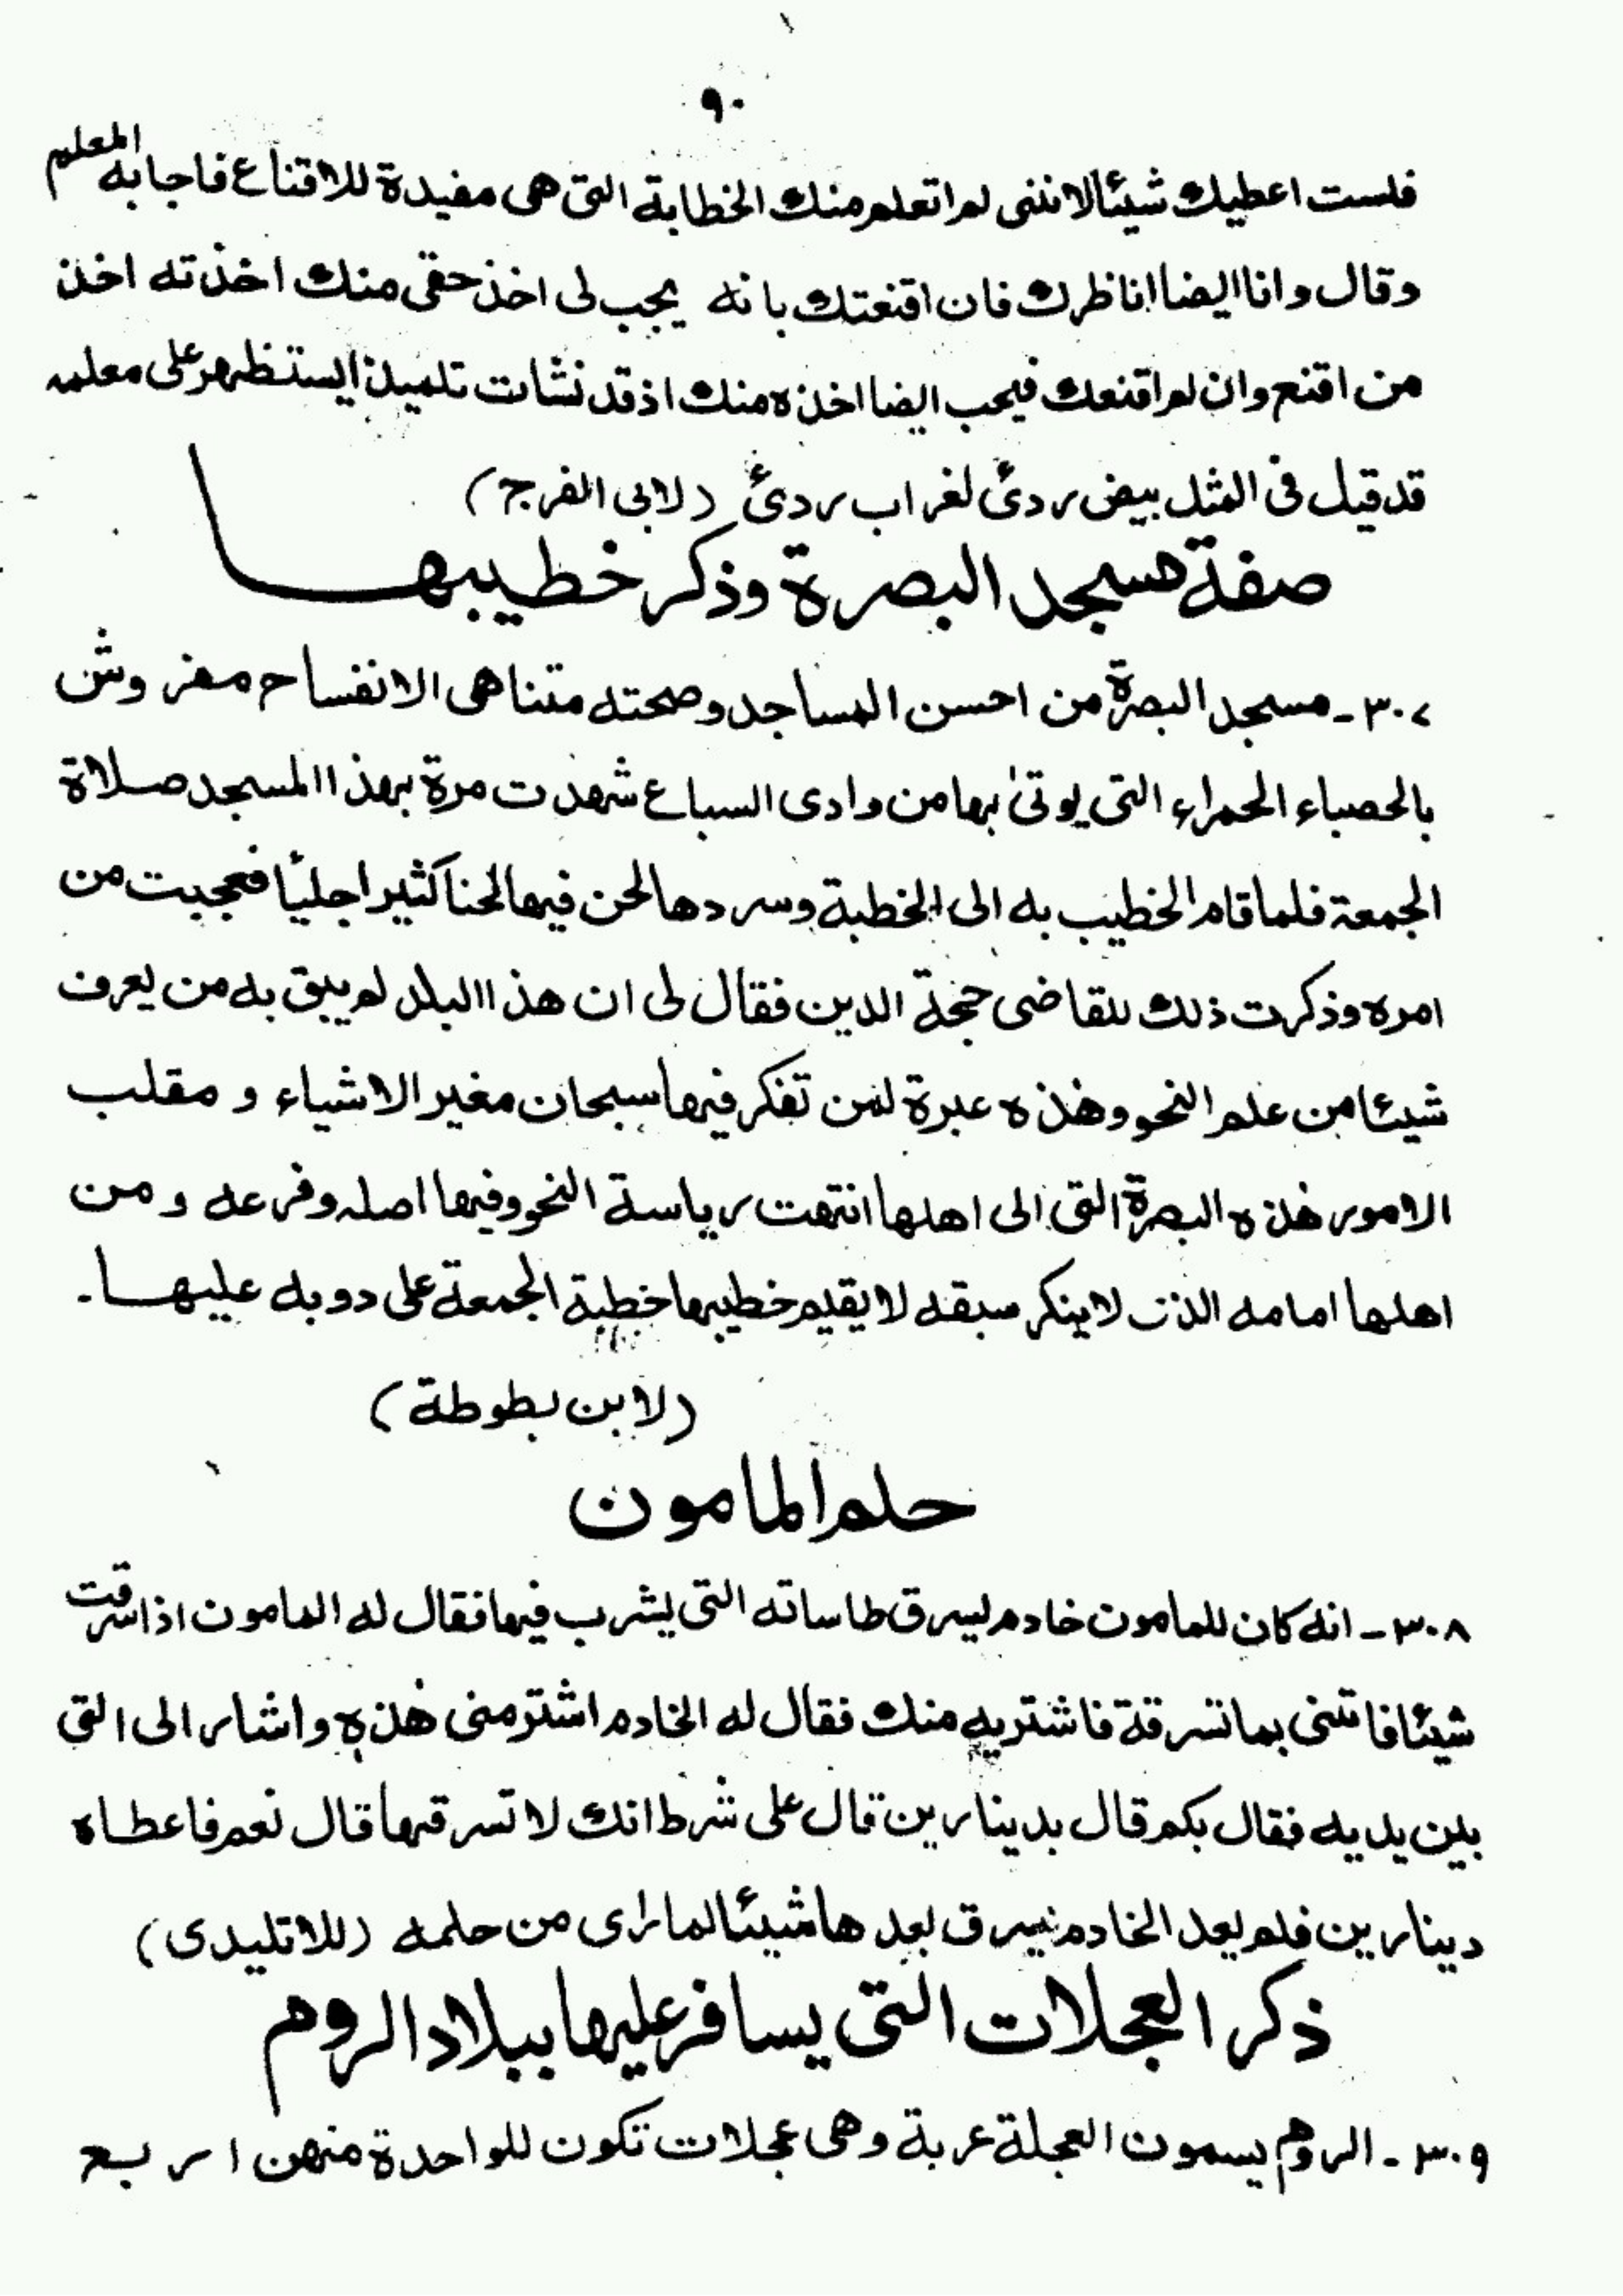 ٩٠
فلست اعطيك شيئا لاننى لم اتعلم منك الخطابة التى هى مفيدة للاقناع فاجابه المعلم
وقال وانا ايضا اناظرك فان اقنعتك بانه يجب لى اخذ حقى منك اخذته اخذ
من اقنع وان لم اقنعك فيجب ايضا اخذه منك اذ قد نشات تلميذا يستظهر على معلمه
قد قيل فى المثل بيض ردئ لغراب ردئ (لابى الفرج)
صفة مسجد البصرة وذكر خطيبها
٣٠٧ - مسجد البصرة من احسن المساجد وصحنه متناهى الانفساح مفروش
بالحصباء الحمراء التى يوتىٰ بها من وادى السباع شهدت مرة بهذا المسجد صلاة
الجمعة فلما قام الخطيب به الى الخطبة وسردها لحن فيها لحنا كثيرا جليًا فعجبت من
امره وذكرت ذلك للقاضى حجة الدين فقال لى ان هذا البلد لم يبق به من يعرف
شيئا من علم النحو وهذه عبرة لمن تفكر فيها سبحان مغير الاشياء و مقلب
الامور هذه البصرة التى الى اهلها انتهت رياسة النحو وفيها اصله وفرعه و من
اهلها امامه الذى لا ينكر سبقه لا يقيم خطيبها خطبة الجمعة على دوبه عليها -
(لابن بطوطة)
حلم المامون
٣٠٨ - انه كان للمامون خادم يسرق طاساته التى يشرب فيها فقال له المامون اذا سرقت
شيئا فاتنى بما تسرقة فاشتريه منك فقال له الخادم اشتر منى هذه واشار الى التى
بين يديه فقال بكم قال بدينارين قال على شرط انك لا تسرقها قال نعم فاعطاه
دينارين فلم يعد الخادم يسرق بعدها شيئا لما راى من حلمه (للاتليدى)
ذكر العجلات التى يسافر عليها ببلاد الروم
٣٠٩ - الروم يسمون العجلة عربة وهى عجلات تكون للواحدة منهن اربع